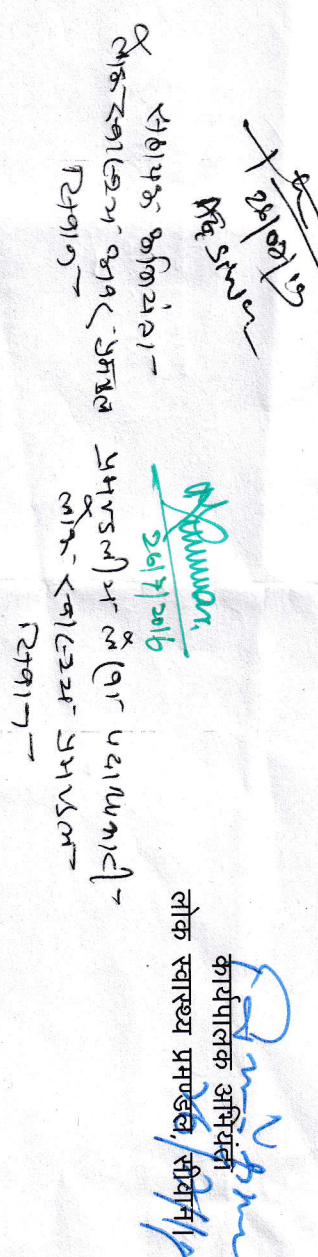 26/07/16
सहायक अभियंता
लोक स्वास्थ्य अवर प्रमंडल
सिवान
26/7/2016
प्रमण्डलीय लेखा पदाधिकारी
लोक स्वास्थ्य प्रमण्डल
सिवान
कार्यपालक अभियंता
लोक स्वास्थ्य प्रमण्डल, सीवान।